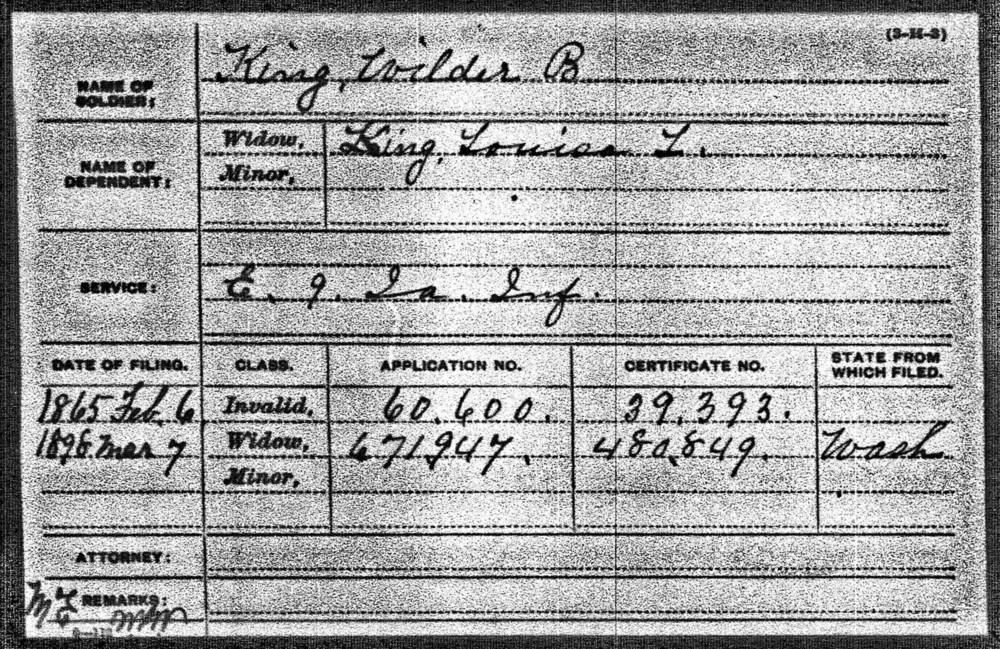 (3-H-3)
NAME OF SOLDIER: King, Wilder B
NAME OF DEPENDENT: Widow, King, Louisa L.
Minor,
SERVICE: E. 9. Ia. Inf.
DATE OF FILING. CLASS. APPLICATION NO. CERTIFICATE NO. STATE FROM WHICH FILED.
1865 Feb. 6 Invalid, 60,600. 39,393.
1898 Mar 7 Widow, 671,947. 480,849. Wash.
Minor,
ATTORNEY:
REMARKS: